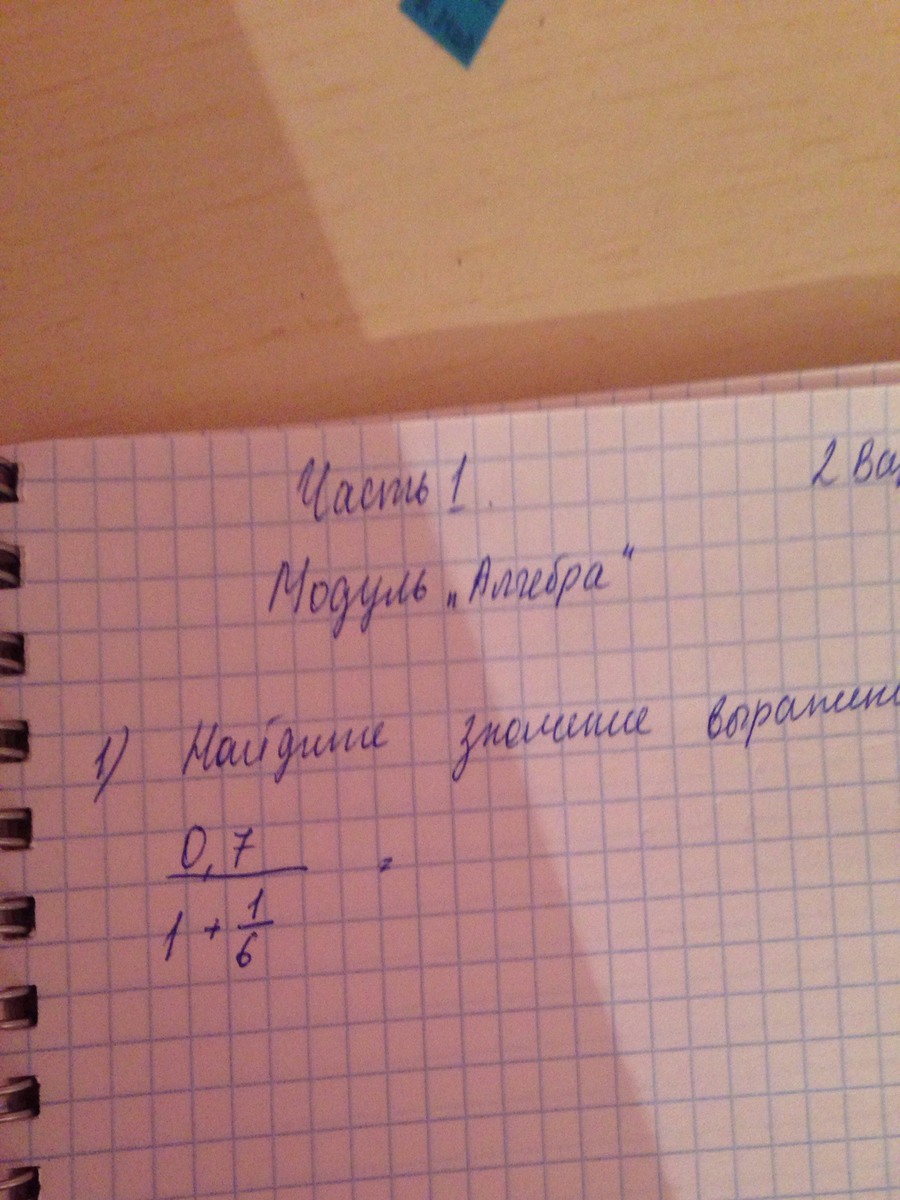 Часть 1.
2 Ва
Модуль „Алгебра“
1) Найдите значение выражени
0,7
=
1 + 1/6